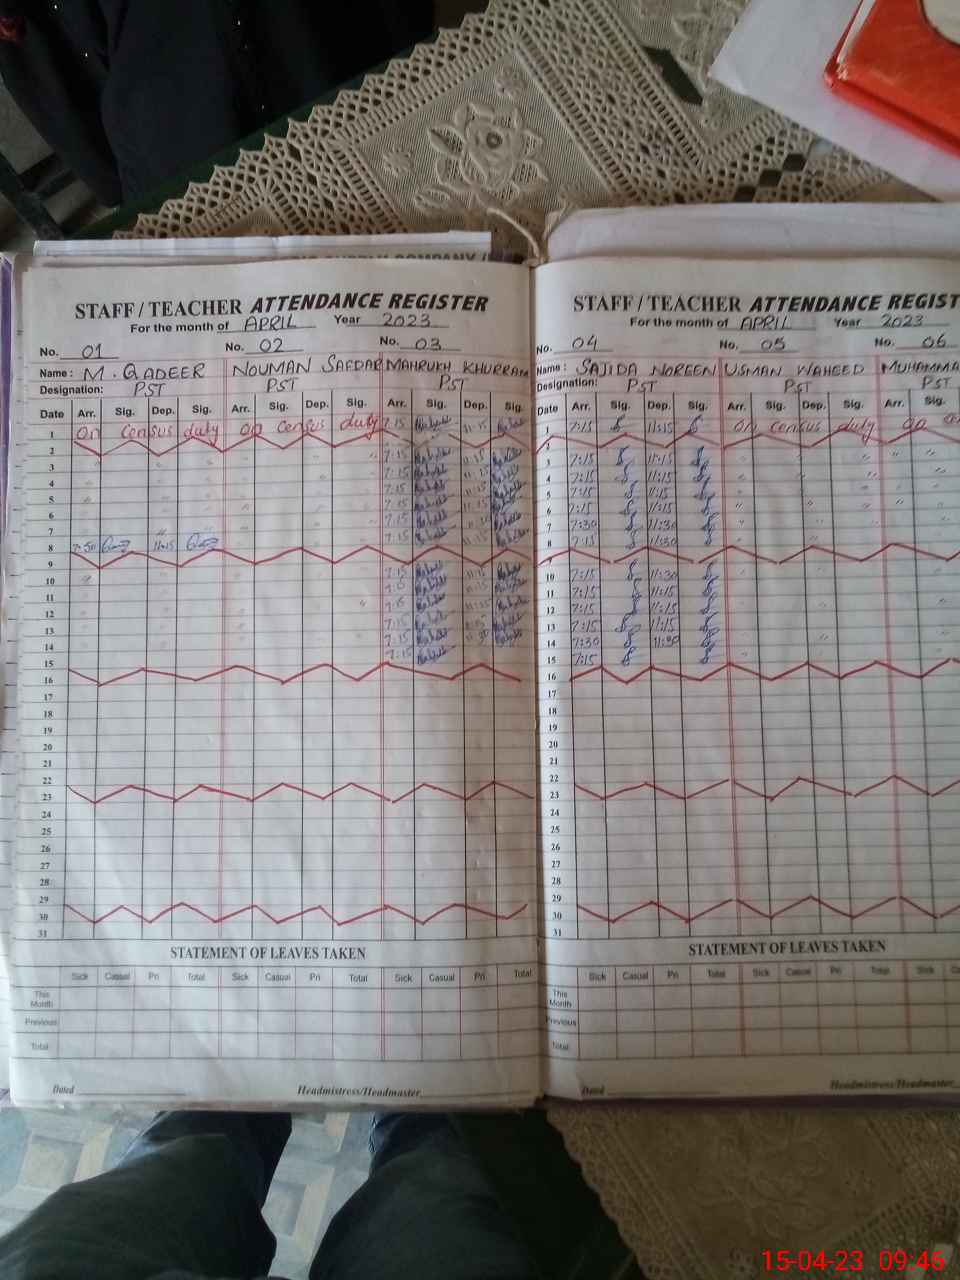 STAFF / TEACHER ATTENDANCE REGISTER
For the month of APRIL Year 2023
No. 01 No. 02 No. 03
Name : M. QADEER NOUMAN SAFDAR MAHRUKH KHURRAM
Designation: PST PST PST
Date Arr. Sig. Dep. Sig. Arr. Sig. Dep. Sig. Arr. Sig. Dep. Sig.
1 On census duty on census duty 7:15 11:15
2
3 7:15 11:15
4 7:15 11:15
5 7:15 11:15
6 7:15 11:15
7 7:15 11:30
8 7:50 11:15 7:15 11:15
9
10 7:15 11:15
11 11:15
12 11:15
13 7:15
14 7:15
15 7:15
16
17
18
19
20
21
22
23
24
25
26
27
28
29
30
31
STATEMENT OF LEAVES TAKEN
Sick Casual Pri Total Sick Casual Pri Total Sick Casual Pri Total
This Month
Previous
Total
Dated Headmistress/Headmaster
STAFF / TEACHER ATTENDANCE REGIST
For the month of APRIL Year 2023
No. 04 No. 05 No. 06
Name : SAJIDA NOREEN USMAN WAHEED MUHAMMA
Designation: PST PST PST
Date Arr. Sig. Dep. Sig. Arr. Sig. Dep. Sig. Arr. Sig.
1 7:15 11:15 on census duty on
2
3 7:15 11:15
4 7:15 11:15
5 7:15 11:15
6 7:15 11:15
7 7:30 11:30
8 7:15 11:30
9
10 7:15 11:30
11 7:15 11:15
12 7:15 11:15
13 7:15 11:15
14 7:30 11:30
15 7:15
16
17
18
19
20
21
22
23
24
25
26
27
28
29
30
31
STATEMENT OF LEAVES TAKEN
Sick Casual Pri Total Sick Casual Pri Total Sick
This Month
Previous
Total
Dated Headmistress/Headmaster
15-04-23 09:46